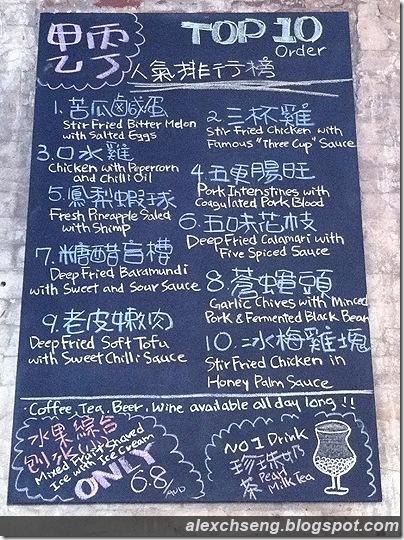 甲丙
乙丁
TOP 10
Order
人氣排行榜
1. 苦瓜鹹蛋
Stir Fried Bitter Melon
with Salted Eggs
2. 三杯雞
Stir Fried Chicken with
Famous "Three Cup" Sauce
3. 口水雞
Chicken with Pepercorn
and Chilli Oil
4. 五更腸旺
Pork Intenstines with
Coagulated Pork Blood
5. 鳳梨蝦球
Fresh Pineapple Salad
with Shimp
6. 五味花枝
Deep Fried Calamari with
Five Spiced Sauce
7. 糖醋盲槽
Deep Fried Baramundi
with Sweet and Sour Sauce
8. 蒼蠅頭
Garlic Chives with Minced
Pork & Fermented Black Bean
9. 老皮嫩肉
Deep Fried Soft Tofu
with Sweet Chilli Sauce
10. 冰梅雞塊
Stir Fried Chicken in
Honey Palm Sauce
Coffee, Tea, Beer, Wine available all day long !!
水果綜合
刨冰
Mixed Fruit Shaved
Ice with Ice Cream
ONLY
6.8/AUD
NO 1 Drink
珍珠奶
茶
Pearl
Milk Tea
alexchseng.blogspot.com